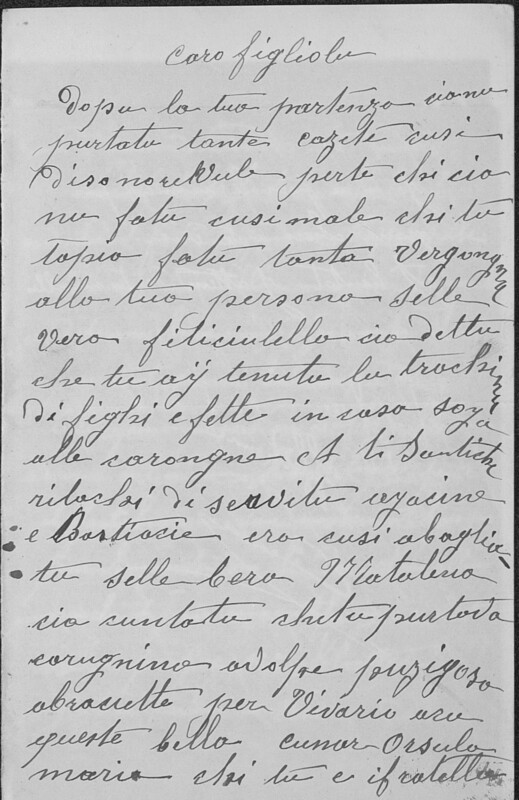 Caro figliolu
dopu la tua partenza cianu
purtatu tante cazete cusi
disonorevule perte chi cia
nu fatu cusi male chi tu
tapia fatu tanta Vergongna
alla tuo persona selle
vero feliciulello cia dettu
che tu aij tenutu lu
di fighi e fette in casa soya
alle carongne A ti
di servitu ayacine
e Bastiacie era cusi abaglia-
tu selle bera Matalena
cia cuntatu chutu purtava
carugnina adolpe puzigosa
abraciette per Vivario ara
queste bella cunor Orsula
maria chi tu e ifratella